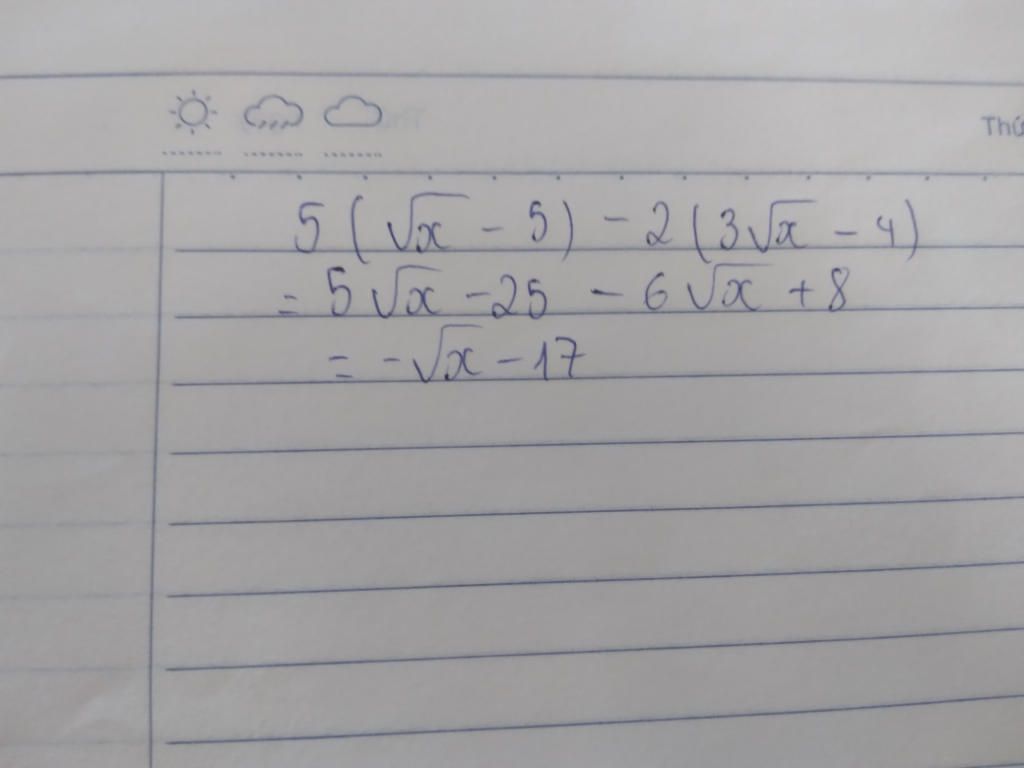 Thứ
5(√x - 5) - 2(3√x - 4)
= 5√x - 25 - 6√x + 8
= -√x - 17